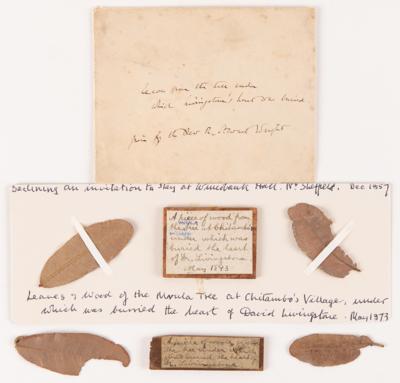 Leaves from the tree under
which Livingstone's heart was buried
given by the Rev R. Stewart Wright
Declining an invitation to stay at Wincobank Hall. Nr Sheffield. Dec 1857
A piece of wood from
the tree at Chitambo
under which was
buried the heart
of Dr. Livingstone.
May 1873
Leaves & Wood of the Mvula Tree at Chitambo's Village, under
which was burried the heart of David Livingstone. May 1973
A piece of wood from
the tree under which
was buried the heart